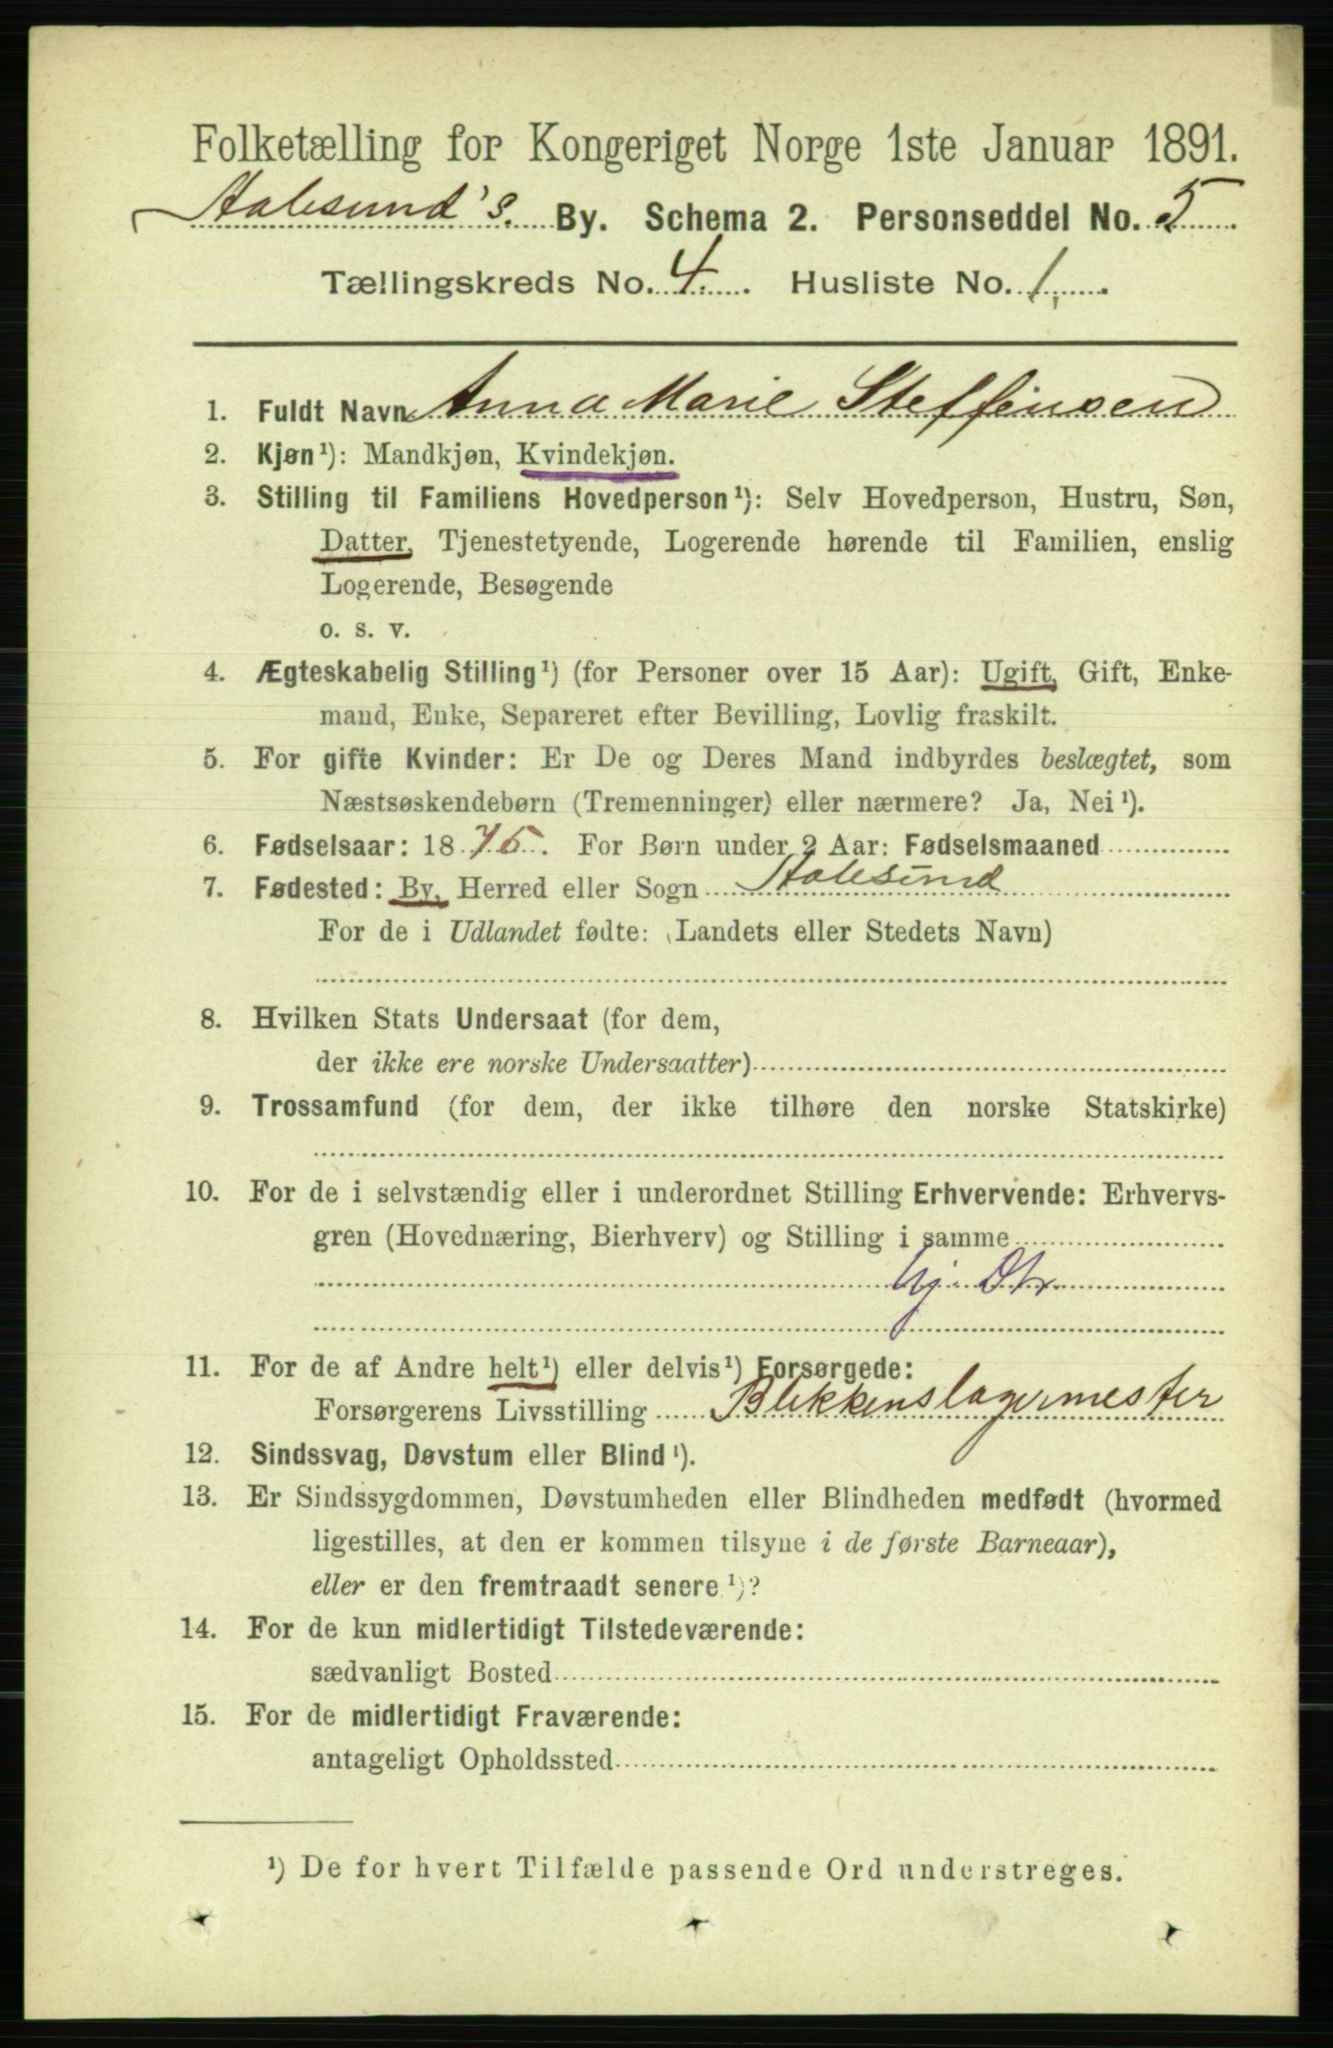 Folketælling for Kongeriget Norge 1ste Januar 1891.
Aalesund's. By. Schema 2. Personseddel No. 5
Tællingskreds No. 4. Husliste No. 1,
1. Fuldt Navn Anna Marie Steffensen
2. Kjøn¹): Mandkjøn, Kvindekjøn.
3. Stilling til Familiens Hovedperson¹): Selv Hovedperson, Hustru, Søn,
Datter, Tjenestetyende, Logerende hørende til Familien, enslig
Logerende, Besøgende
o. s. v.
4. Ægteskabelig Stilling¹) (for Personer over 15 Aar): Ugift, Gift, Enke-
mand, Enke, Separeret efter Bevilling, Lovlig fraskilt.
5. For gifte Kvinder: Er De og Deres Mand indbyrdes beslægtet, som
Næstsøskendebørn (Tremenninger) eller nærmere? Ja, Nei¹).
6. Fødselsaar: 1875. For Børn under 2 Aar: Fødselsmaaned
7. Fødested: By, Herred eller Sogn Aalesund
For de i Udlandet fødte: (Landets eller Stedets Navn)
8. Hvilken Stats Undersaat (for dem,
der ikke ere norske Undersaatter)
9. Trossamfund (for dem, der ikke tilhøre den norske Statskirke)
10. For de i selvstændig eller i underordnet Stilling Erhvervende: Erhvervs-
gren (Hovednæring, Bierhverv) og Stilling i samme
hj. Dtr
11. For de af Andre helt¹) eller delvis¹) Forsørgede:
Forsørgerens Livsstilling Blikkenslagermester
12. Sindssvag, Døvstum eller Blind¹).
13. Er Sindssygdommen, Døvstumheden eller Blindheden medfødt (hvormed
ligestilles, at den er kommen tilsyne i de første Barneaar),
eller er den fremtraadt senere¹)?
14. For de kun midlertidigt Tilstedeværende:
sædvanligt Bosted
15. For de midlertidigt Fraværende:
antageligt Opholdssted
¹) De for hvert Tilfælde passende Ord understreges.